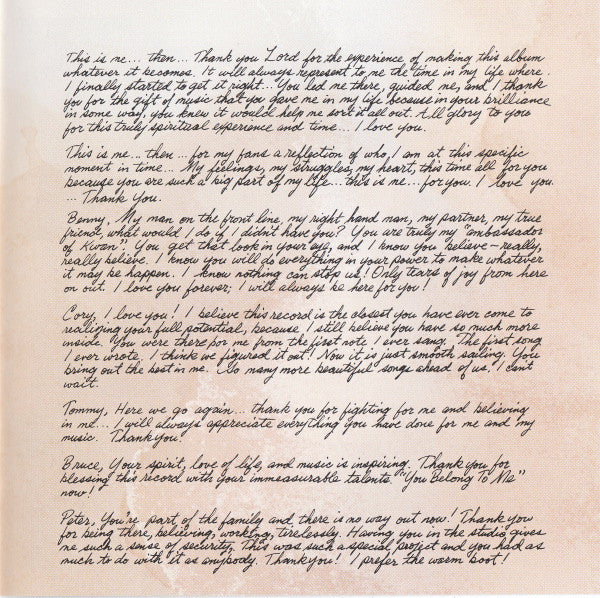 This is me... then... Thank you Lord for the experience of making this album
whatever it becomes. It will always represent to me the time in my life where
I finally started to get it right... You led me there, guided me, and I thank
you for the gift of music that you gave me in my life because in your brilliance
in some way, you knew it would help me sort it all out. All glory to you
for this truly spiritual experience and time... I love you.
This is me... then... for my fans a reflection of who I am at this specific
moment in time... My feelings, my struggles, my heart, this time all for you
because you are such a big part of my life... this is me... for you. I love you.
... Thank You.
Benny, My man on the front line, my right hand man, my partner, my true
friend, what would I do if I didn't have you? You are truly my "ambassador
of Kwan". You get that look in your eye, and I know you believe - really,
really believe. I know you will do everything in your power to make whatever
it may be happen. I know nothing can stop us! Only tears of joy from here
on out. I love you forever; I will always be here for you!
Cory, I love you! I believe this record is the closest you have ever come to
realizing your full potential, because I still believe you have so much more
inside. You were there for me from the first note I ever sang. The first song
I ever wrote. I think we figured it out! Now it is just smooth sailing. You
bring out the best in me. So many more beautiful songs ahead of us. I can't
wait.
Tommy, Here we go again... thank you for fighting for me and believing
in me... I will always appreciate everything you have done for me and my
music. Thank You!
Bruce, Your spirit, love of life, and music is inspiring. Thank you for
blessing this record with your immeasurable talents. "You Belong To Me"
now!
Peter, You're part of the family and there is no way out now! Thank you
for being there, believing, working, tirelessly. Having you in the studio gives
me such a sense of security. This was such a special project and you had as
much to do with it as anybody. Thank you! I prefer the warm boot!